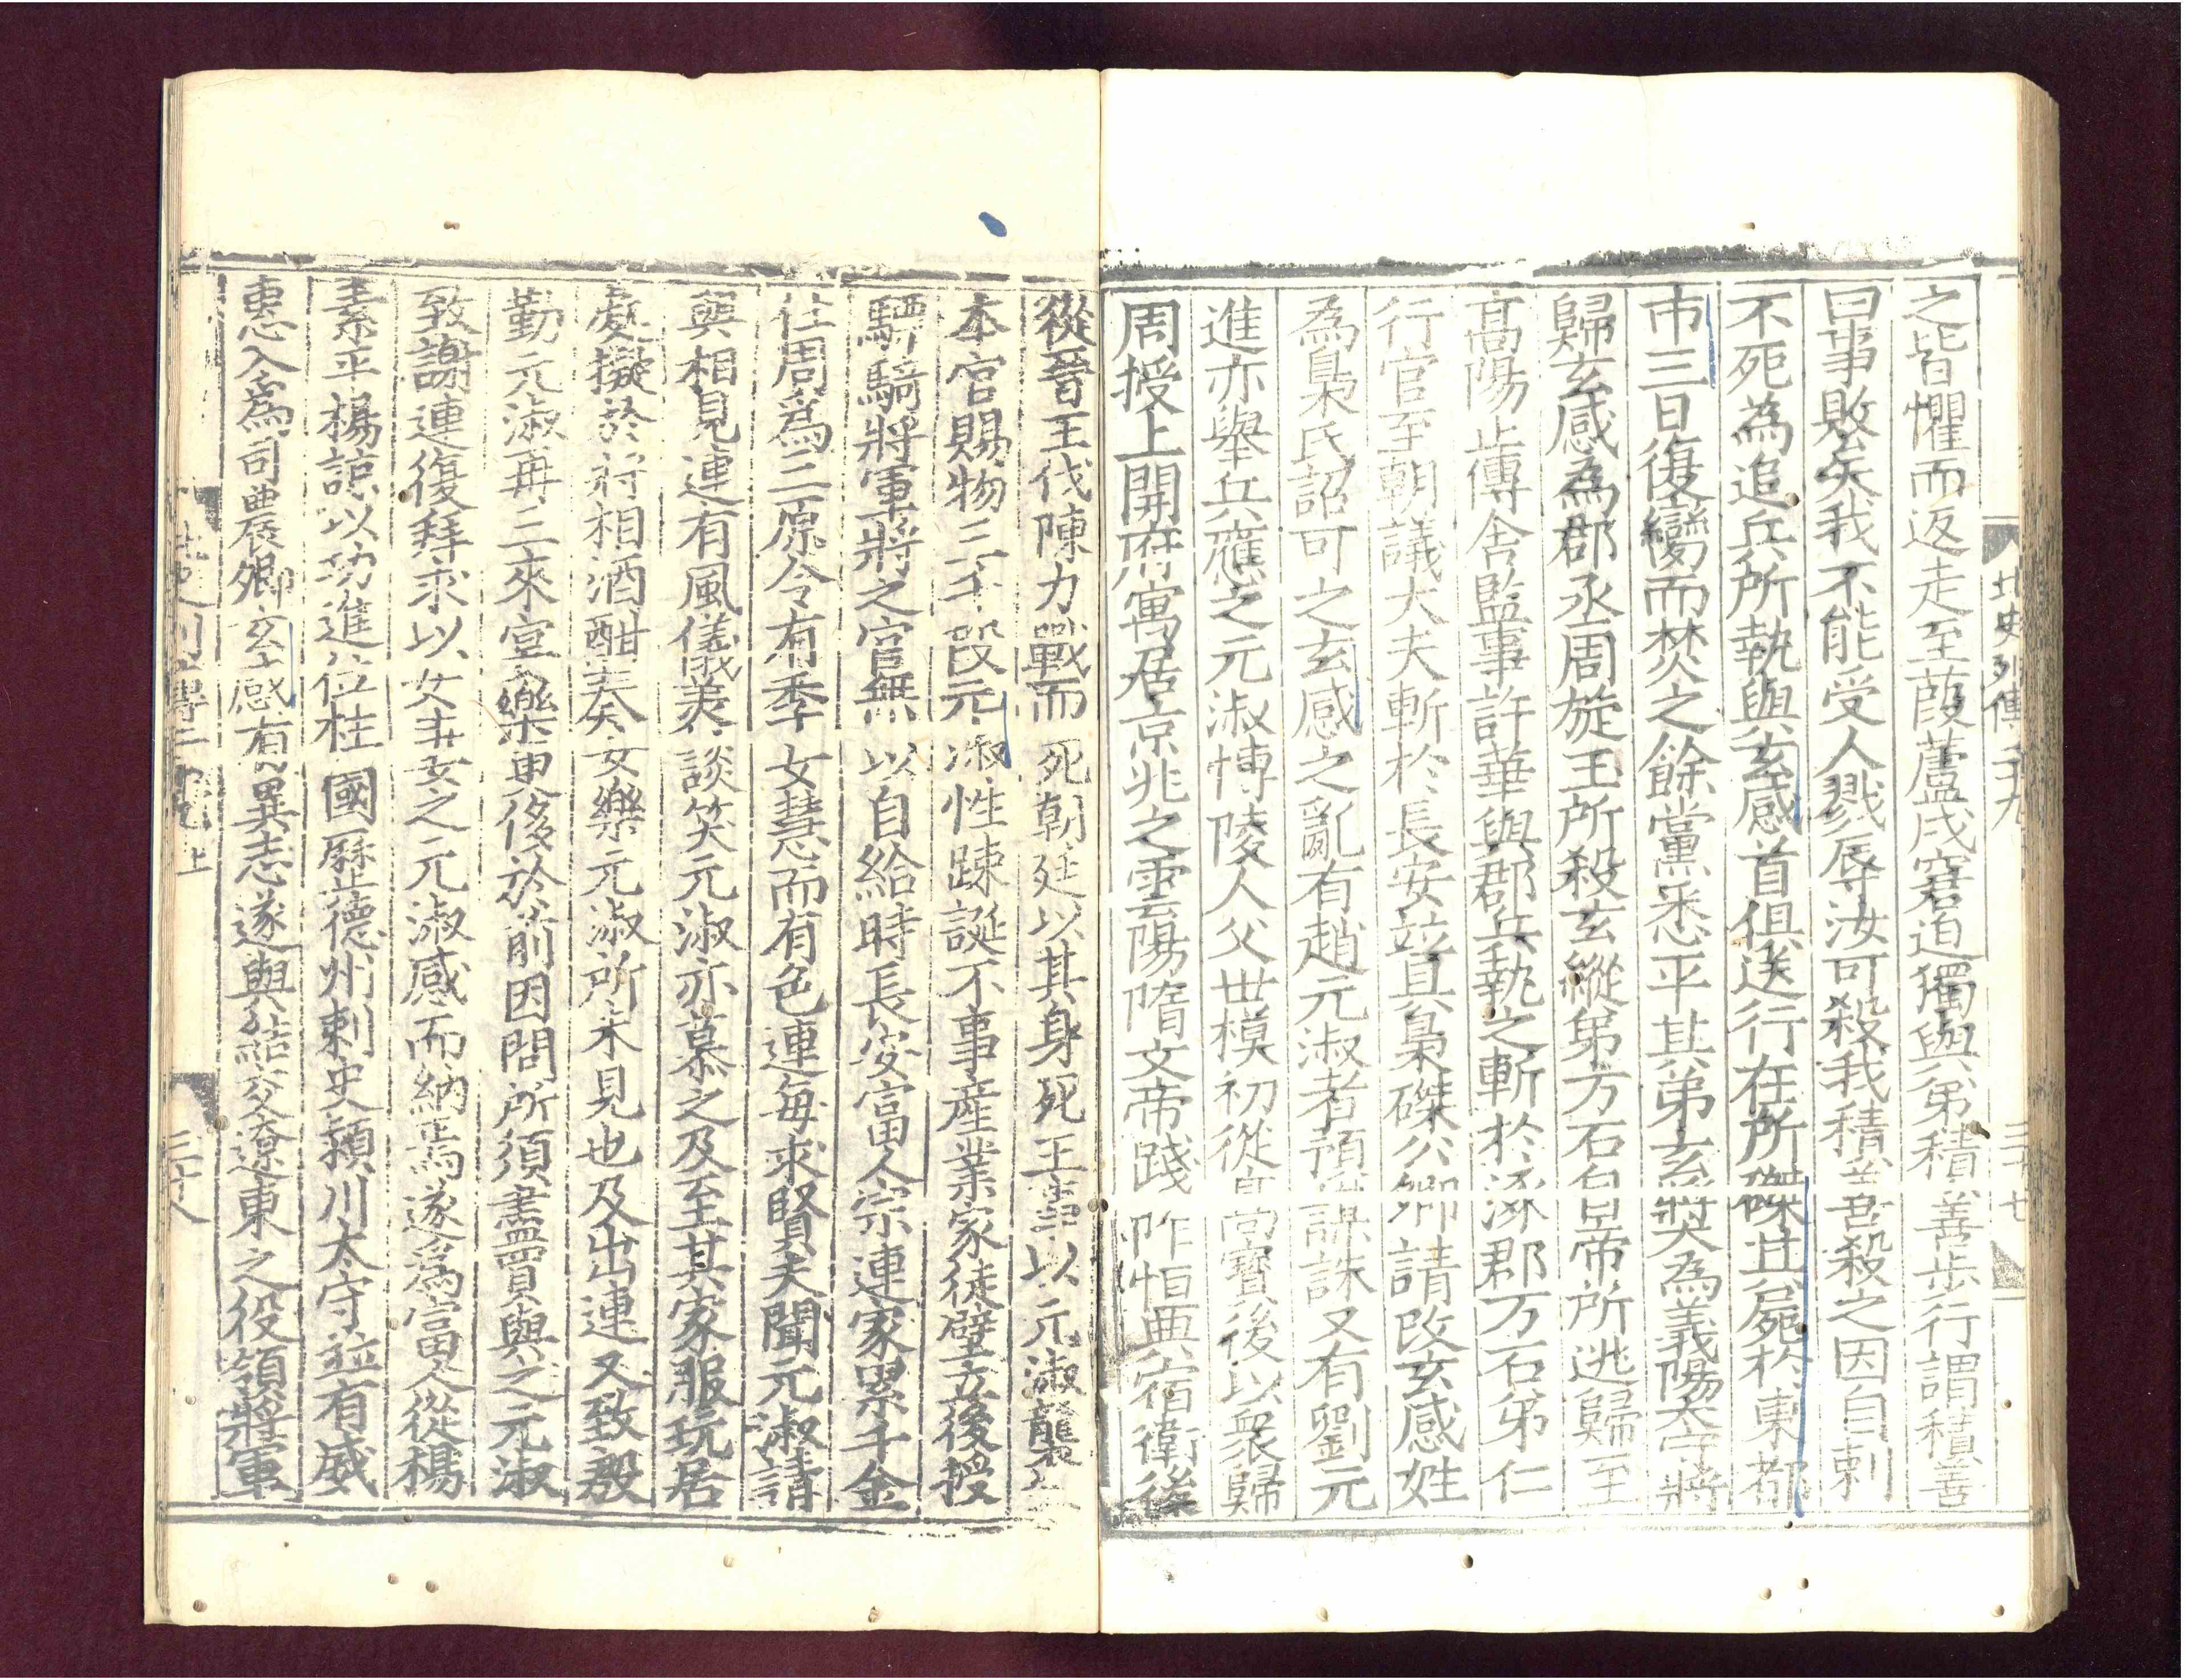 北史列傳二十九
三十七
之皆懼而返走至葭蘆戍窘迫獨與弟積善步行謂積善
曰事敗矣我不能受人戮辱汝可殺我積善殺之因自刺
不死為追兵所執與玄感首俱送行在所磔其屍於東都
市三日復臠而焚之餘黨悉平其弟玄奬為義陽太守將
歸玄感為郡丞周旋玉所殺玄縱弟万石自帝所逃歸至
高陽止傳舍監事許華與郡兵執之斬於涿郡万石弟仁
行官至朝議大夫斬於長安並具梟磔公卿請改玄感姓
為梟氏詔可之玄感之亂有趙元淑者預謀誅又有劉元
進亦舉兵應之元淑博陵人父世模初從高寶後以衆歸
周授上開府寓居京兆之雲陽隋文帝踐阼恒典宿衛後
從晉王伐陳力戰而死朝廷以其身死王事以元淑襲
本官賜物三千段元淑性踈誕不事產業家徒壁立後授
驃騎將軍將之官無以自給時長安富人宗連家累千金
仕周爲三原令有季女慧而有色連每求賢夫聞元淑請
與相見連有風儀美談笑元淑亦慕之及至其家服玩居
處擬於將相酒酣奏女樂元淑所未見也及出連又致殷
勤元淑再三來宴樂更侈於前因問所須盡買與之元淑
致謝連復拜求以女妻之元淑感而納焉遂爲富人從楊
素平楊諒以功進位柱國歷德州刺史潁川太守並有威
惠入爲司農卿玄感有異志遂與結交遼東之役領將軍
北史列傳二十九上
三十八